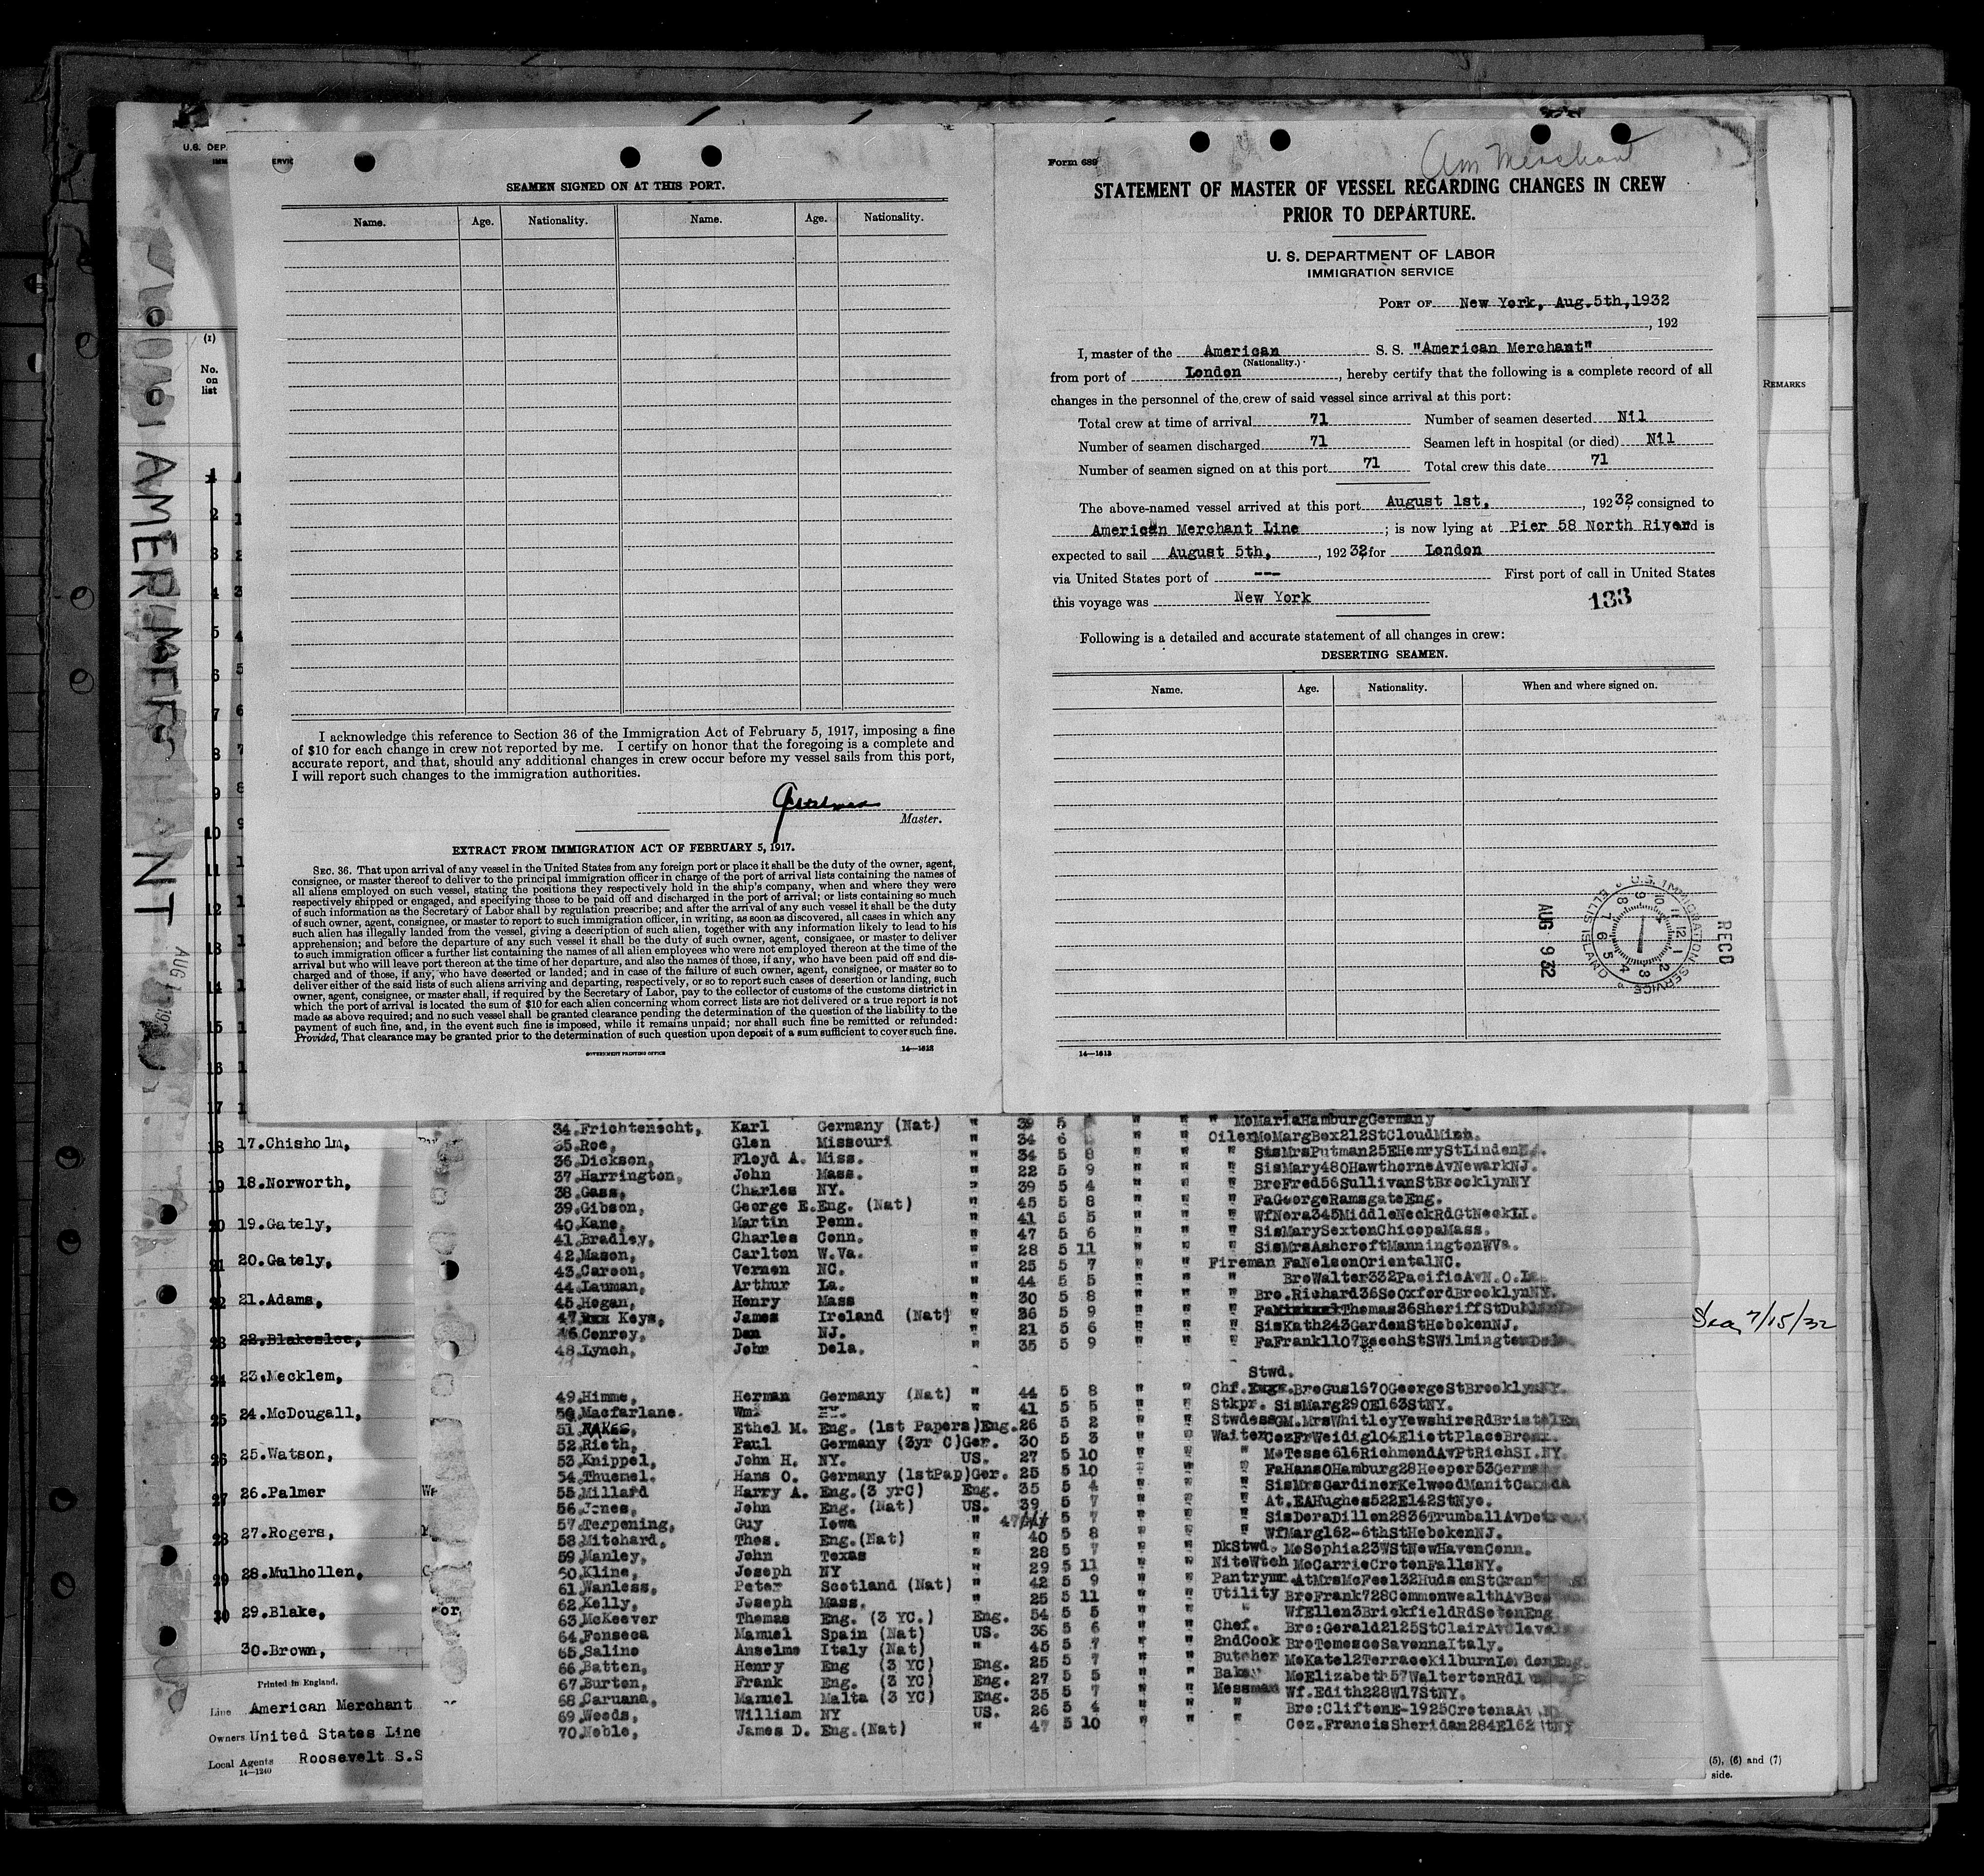 U.S. DEP.
SERVIC
SEAMEN SIGNED ON AT THIS PORT.
Name. Age. Nationality. Name. Age. Nationality.
I acknowledge this reference to Section 36 of the Immigration Act of February 5, 1917, imposing a fine
of $10 for each change in crew not reported by me. I certify on honor that the foregoing is a complete and
accurate report, and that, should any additional changes in crew occur before my vessel sails from this port,
I will report such changes to the immigration authorities.
Master.
EXTRACT FROM IMMIGRATION ACT OF FEBRUARY 5, 1917.
SEC. 36. That upon arrival of any vessel in the United States from any foreign port or place it shall be the duty of the owner, agent,
consignee, or master thereof to deliver to the principal immigration officer in charge of the port of arrival lists containing the names of
all aliens employed on such vessel, stating the positions they respectively hold in the ship's company, when and where they were
respectively shipped or engaged, and specifying those to be paid off and discharged in the port of arrival; or lists containing so much
of such information as the Secretary of Labor shall by regulation prescribe; and after the arrival of any such vessel it shall be the duty
of such owner, agent, consignee, or master to report to such immigration officer, in writing, as soon as discovered, all cases in which any
such alien has illegally landed from the vessel, giving a description of such alien, together with any information likely to lead to his
apprehension; and before the departure of any such vessel it shall be the duty of such owner, agent, consignee, or master to deliver
to such immigration officer a further list containing the names of all alien employees who were not employed thereon at the time of the
arrival but who will leave port thereon at the time of her departure, and also the names of those, if any, who have been paid off and dis-
charged and of those, if any, who have deserted or landed; and in case of the failure of such owner, agent, consignee, or master so to
deliver either of the said lists of such aliens arriving and departing, respectively, or so to report such cases of desertion or landing, such
owner, agent, consignee, or master shall, if required by the Secretary of Labor, pay to the collector of customs of the customs district in
which the port of arrival is located the sum of $10 for each alien concerning whom correct lists are not delivered or a true report is not
made as above required; and no such vessel shall be granted clearance pending the determination of the question of the liability to the
payment of such fine, and, in the event such fine is imposed, while it remains unpaid; nor shall such fine be remitted or refunded:
Provided, That clearance may be granted prior to the determination of such question upon deposit of a sum sufficient to cover such fine.
GOVERNMENT PRINTING OFFICE 14—1613
Form 689
Am Merchant
STATEMENT OF MASTER OF VESSEL REGARDING CHANGES IN CREW
PRIOR TO DEPARTURE.
U. S. DEPARTMENT OF LABOR
IMMIGRATION SERVICE
PORT OF New York, Aug.5th,1932
, 192
I, master of the American S. S. "American Merchant"
(Nationality.)
from port of London, hereby certify that the following is a complete record of all
changes in the personnel of the crew of said vessel since arrival at this port:
Total crew at time of arrival 71 Number of seamen deserted Nil
Number of seamen discharged 71 Seamen left in hospital (or died) Nil
Number of seamen signed on at this port 71 Total crew this date 71
The above-named vessel arrived at this port August 1st, , 192 32, consigned to
American Merchant Line ; is now lying at Pier 58 North River and is
expected to sail August 5th, , 192 32, for London
via United States port of --- First port of call in United States
this voyage was New York
133
Following is a detailed and accurate statement of all changes in crew:
DESERTING SEAMEN.
Name. Age. Nationality. When and where signed on.
RECD
U.S. IMMIGRATION SERVICE ELLIS ISLAND
AUG 9 32
14—1613
AMER MERCHANT
(1)
No.
on
list
REMARKS
17.Chisholm,
18.Norworth,
19.Gately,
20.Gately,
21.Adams,
22.Blakeslee,
23.Mecklem,
24.McDougall,
25.Watson,
26.Palmer
27.Rogers,
28.Mulhollen,
29.Blake,
30.Brown,
Printed in England.
Line American Merchant
Owners United States Line
Local Agents Roosevelt S.S
14—1240
34.Frichtenscht, Karl Germany (Nat) " 39 5 " " " MoMariaHamburgGermany
35.Roe, Glen Missouri " 34 6 " " OilerMoMargBox212StCloudMinn.
36.Dickson, Floyd A. Miss. " 34 5 8 " " " SisMrsPutman25EHenryStLinden
37.Harrington, John Mass. " 22 5 9 " " " SisMary480HawthorneAvNewarkNJ.
38.Gass, Charles NY. " 39 5 4 " " " BroFred56SullivanStBrooklynNY
39.Gibson, George E.Eng. (Nat) " 45 5 8 " " " FaGeorgeRamsgateEng.
40.Kane, Martin Penn. " 41 5 5 " " " WfNora345MiddleNeckRdGtNeckLI.
41.Bradley, Charles Conn. " 47 5 6 " " " SisMarySextonChicopaMass.
42.Mason, Carlton W.Va. " 28 5 11 " " " SisMrsAshcroftManningtonWVa.
43.Carson, Vernon NC. " 25 5 7 " " Fireman FaNelsonOrientalNC.
44.Lauman, Arthur La. " 44 5 5 " " " BroWalter332PacificAvN.O.La
45.Hogan, Henry Mass " 30 5 8 " " " Bro.Richard36SoOxfordBrooklynNY.
47. Keys, James Ireland (Nat) " 26 5 9 " " " Thomas36SheriffSt
46.Conroy, Dan NJ. " 21 5 6 " " " SisKath243GardenStHobokenNJ.
48.Lynch, John Dela. " 35 5 9 " " " FaFrank1107BeechStSWilmingtonDela
49.Himme, Herman Germany (Nat) " 44 5 8 " " Chf.Stwd.BroGus1670GeorgeStBrooklynNY.
50.Macfarlane. Wm. NY. " 41 5 5 " " Stkpr. SisMarg290E163StNY.
51. Ethel M. Eng. (1st Papers)Eng.26 5 2 " " StwdessGM.MrsWhitleyYewshireRdBristolEn
52.Rieth, Paul Germany (3yr C)Ger. 30 5 3 " " WaiterCozFrWeidig104EliottPlaceBronx.
53.Knippel, John H. NY. US. 27 5 10 " " " MoTesse616RichmondAvPtRichSI.NY.
54.Thuemel. Hans O. Germany (1stPap)Ger. 25 5 10 " " " FaHansOHamburg28Hoeper53Germ
55.Millard Harry A. Eng.(3 yrC) Eng. 35 5 4 " " " SisMrsGardinerKelwoodManitCanada
56.Jones, John Eng. (Nat) US. 39 5 7 " " " At.EAHughes522E142StNyc.
57.Terpening, Guy Iowa " 47 5 7 " " " SisDoraDillon2836TrumballAv
58.Mitchard, Thos. Eng.(Nat) " 40 5 8 " " " WfMarg162-6thStHobokenNJ.
59.Manley, John Texas " 28 5 7 " " DkStwd. MoSophia23WStNewHavenConn.
60.Kline, Joseph NY " 29 5 11 " " NiteWtch MoCarrieCrotonFallsNY.
61.Wanless, Peter Scotland (Nat) " 42 5 9 " " Pantrymn AtMrsMcFeel32HudsonSt
62.Kelly, Joseph Mass. " 25 5 11 " " Utility BroFrank728CommonwealthAvBos
63.McKeever Thomas Eng. (3 YC.) Eng. 54 5 5 " " " WfEllen3BrickfieldRdSotonEng
64.Fonseca Manuel Spain (Nat) US. 36 5 6 " " Chef. Bro:Gerald2125StClairAv
65.Salino Anselmo Italy (Nat) " 45 5 7 " " 2ndCook BroTomescoSavonnaItaly.
66.Batten, Henry Eng (3 YC) Eng. 25 5 7 " " Butcher MoKate12TerraceKilburnLondonEng.
67.Burton, Frank Eng. (3 YC) Eng. 27 5 5 " " Baker MoElizabeth57WaltertonRd
68.Caruana, Manuel Malta (3 YC) Eng. 35 5 7 " " Messman Wf.Edith228W17StNY.
69.Woods, William NY US. 26 5 4 " " " Bro:CliftonE-1925CrotonaAv
70.Noble, James D. Eng.(Nat) " 47 5 10 " " " Coz.FrancisSheridan284E162 tNY
7/15/32
(5), (6) and (7)
side.